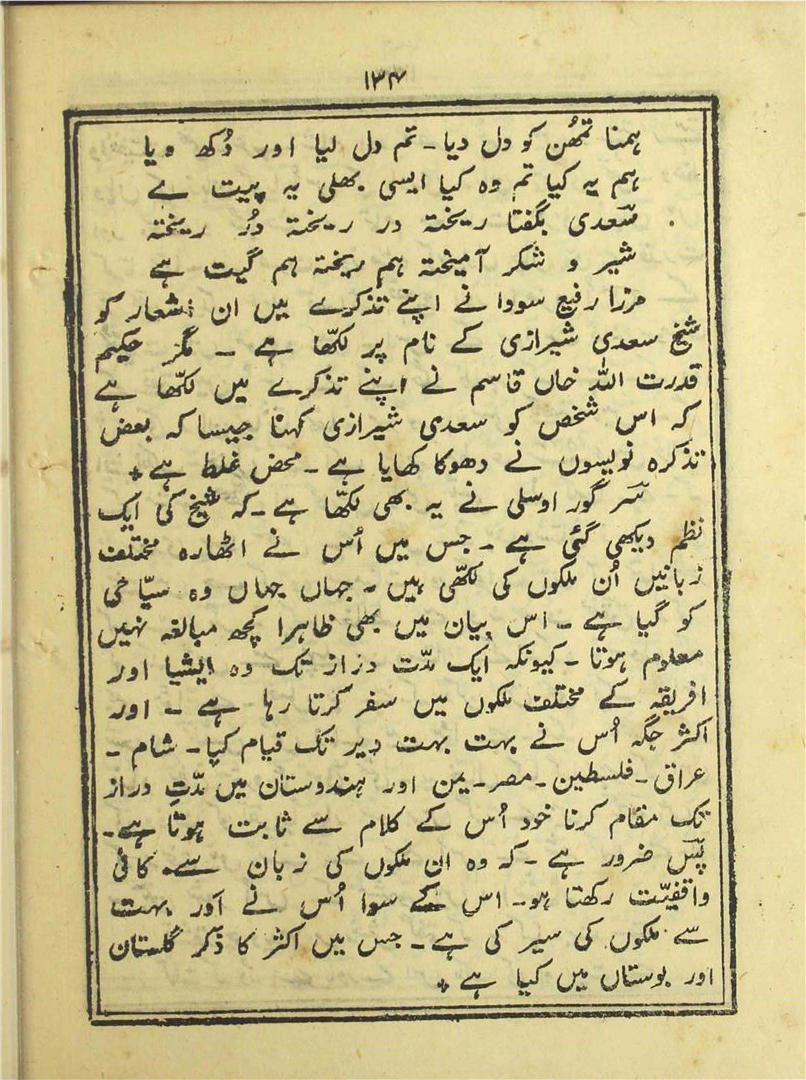 ۱۳۴
ہمنا تمھُن کو دل دیا۔ تم دل لیا اور دُکھ دیا
ہم یہ کیا تم وہ کیا ایسی بھلی یہ پیت ہے
سعدی بگفتا ریختہ در ریختہ دُر ریختہ
شیر و شکر آمیختہ ہم ریختہ ہم گیت ہے
مرزا رفیع سودا نے اپنے تذکرے میں ان اشعار کو
شیخ سعدی شیرازی کے نام پر لکھّا ہے ۔ مگر حکیم
قدرت اللہ خاں قاسم نے اپنے تذکرے میں لکھّا ہے
کہ اس شخص کو سعدی شیرازی کہنا جیسا کہ بعض
تذکرہ نویسوں نے دھوکا کھایا ہے ۔ محض غلط ہے ٭
سر گور اوسلی نے یہ بھی لکھّا ہے ۔ کہ شیخ کی ایک
نظم دیکھی گئی ہے ۔ جس میں اُس نے اٹھارہ مختلف
زبانیں اُن ملکوں کی لکھّی ہیں ۔ جہاں جہاں وہ سیّاحی
کو گیا ہے ۔ اس بیان میں بھی ظاہرا کچھ مبالغہ نہیں
معلوم ہوتا ۔ کیونکہ ایک مدّت دراز تک وہ ایشیا اور
افریقہ کے مختلف ملکوں میں سفر کرتا رہا ہے ۔ اور
اکثر جگہ اُس نے بہت بہت دیر تک قیام کیا ۔ شام ۔
عراق ۔ فلسطین ۔ مصر ۔ یمن اور ہندوستان میں مدّتِ دراز
تک مقام کرنا خود اُس کے کلام سے ثابت ہوتا ہے ۔
پس ضرور ہے ۔ کہ وہ ان ملکوں کی زبان سے کافی
واقفیّت رکھتا ہو ۔ اس کے سوا اُس نے اَور بہت
سے ملکوں کی سیر کی ہے ۔ جس میں اکثر کا ذکر گلستان
اور بوستاں میں کیا ہے ٭